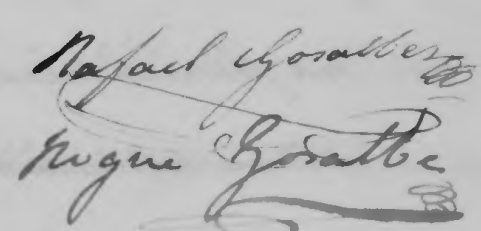 Rafael Gosalbez
Roque Gosalbe